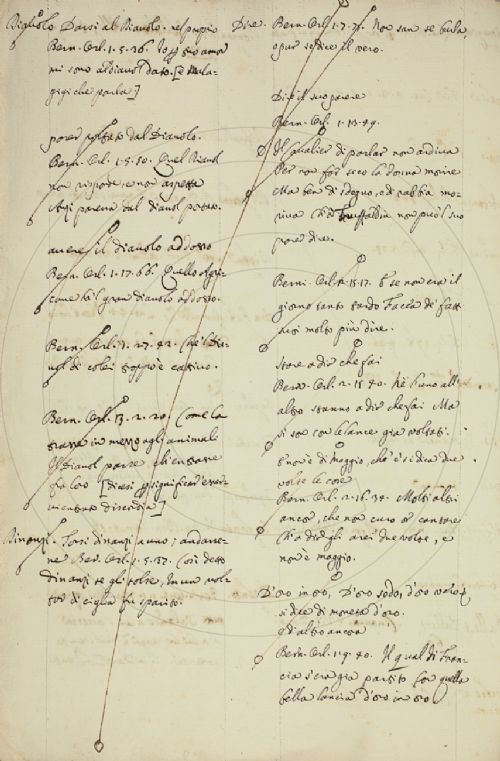 Diavolo Darsi al Diavolo. nel proprio
Bern. Orl. 1. 5. 36.
mi sono al Diavol dato. [è Mala-
gigi che parla]
portato dal Diavolo.
Bern. Orl. 1. 5. 50. Quel Diavol
non risponde, e non aspetta
pareva dal diavol portato.
avere il diavolo addosso
Bern. Orl. 1. 17. 66. Quello
il gran diavolo addosso.
Bern. Orl. 1. 27. 42. Ch'è l Dia-
vol di colei troppo è cattivo.
Bern. Orl. 13. 2. 20. Come la
in mezzo agli animali
Diavol parse, ch'entrasse
fra loro [dicesi p significar
discordia]
Dinanzi. Torsi dinanzi a uno; andarse-
ne Ber. Orl. 1. 5. 37. Così detto
dinanzi se gli tolse, In un vol-
tar di ciglia fu sparito.
Dire. Bern. Orl. 1. 7. 71. Non san se burla,
o pur se dice il vero.
Dire il suo parere
Bern. Orl. 1. 13. 49.
Il cavalier di parlar non ardiva
Per non far seco la donna morire
Ma ben di sdegno, e di rabbia mo-
riva Che Truffaldin non può l suo
parer dire.
Berni. Orl. 15. 17. E se non era il
giorno tanto tardo Facea di fatti
suoi molto più dire.
Stare a dir che fai
Bern. Orl. 2. 15. 40. Nè l'uno all'
altro stanno a dir che fai Ma
si son con le lance già voltati.
E non è di Maggio, che si dica due
volte le cose
Bern. Orl. 2. 16. 34. Molti altri
ancor, che non curo or cantare
Ch'a dirgli arei due volte, e
non è maggio.
D'oro in oro, D'oro sodo, d'oro
si dice di moneta d'oro.
d'altro ancora
Bern. Orl. 1. 9. 40. Il qual di Fran-
cia s'era già partito Con quella
bella lancia d'oro in oro